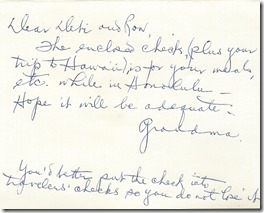 Dear Deti and Ron,
The enclosed check, (plus your
trip to Hawaii), is for your meals,
etc. while in Honolulu –
Hope it will be adequate –
Grandma.
You'd better put the check into
travelers' checks so you do not lose it